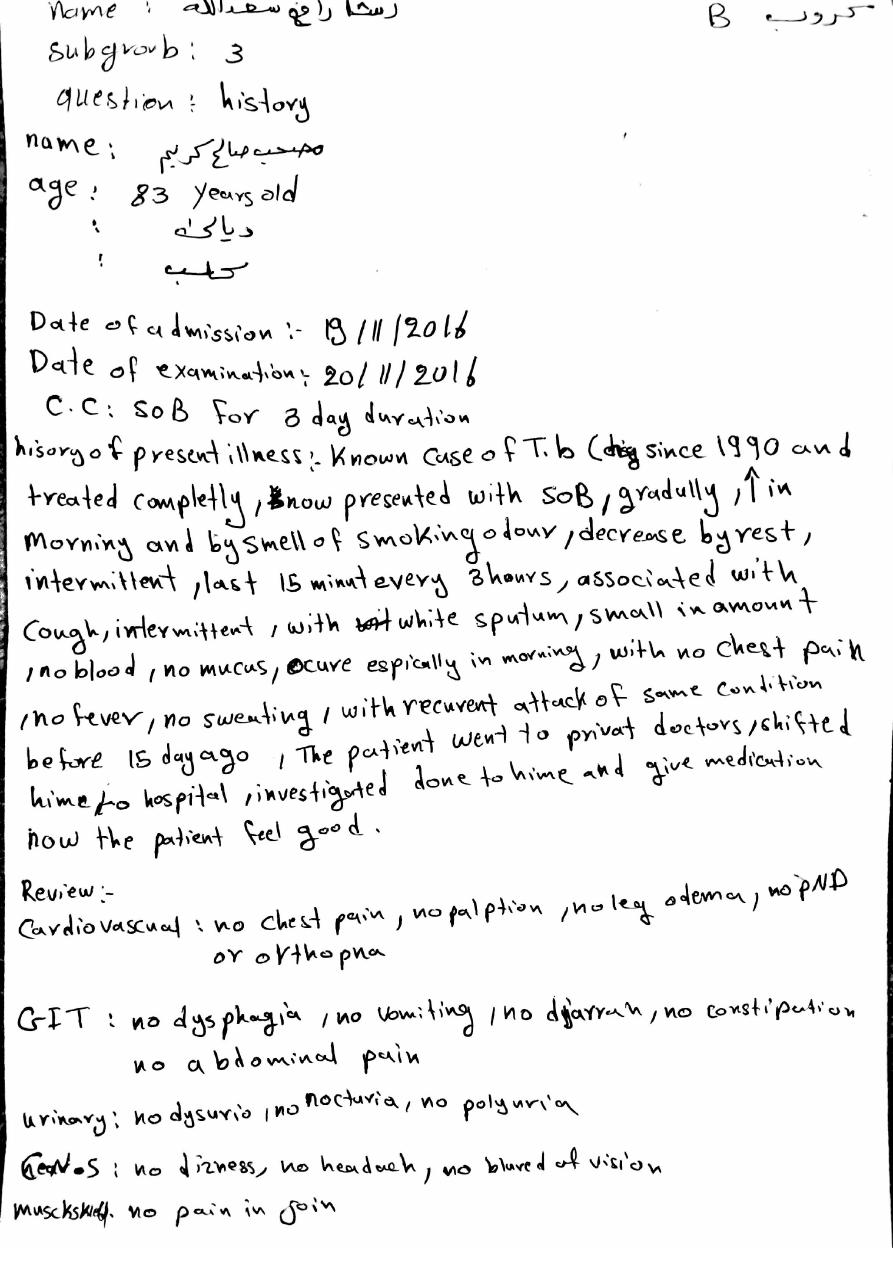 name : رسا رافع سعدالله كروب B
subgroub : 3
question : history
name : صالح كريم
age : 83 years old
: ديالى
:
Date of admission :- 19/11/2016
Date of examination: 20/11/2016
C.C: SOB For 3 day duration
hisory of present illness :- Known Case of T.b ( since 1990 and
treated completly, now presented with SOB, gradully, ↑ in
Morning and by smell of smoking odour, decrease by rest,
intermittent, last 15 minut every 3 hours, associated with
Cough, intermittent, with white sputum, small in amount
, no blood, no mucus, ocure espically in morning, with no chest pain
, no fever, no sweating, with recurent attack of same condition
before 15 day ago, The patient went to privat doctors, shifted
hime to hospital, investigated done to hime and give medication
now the patient feel good.
Review :-
Cardiovascual : no chest pain, no palption, no leg odema, no PND
or orthopna
GIT : no dysphagia, no vomiting, no djarrah, no constipation
no abdominal pain
urinary : no dysurio, no nocturia, no polyuria
: no dizness, no headach, no blured of vision
no pain in join